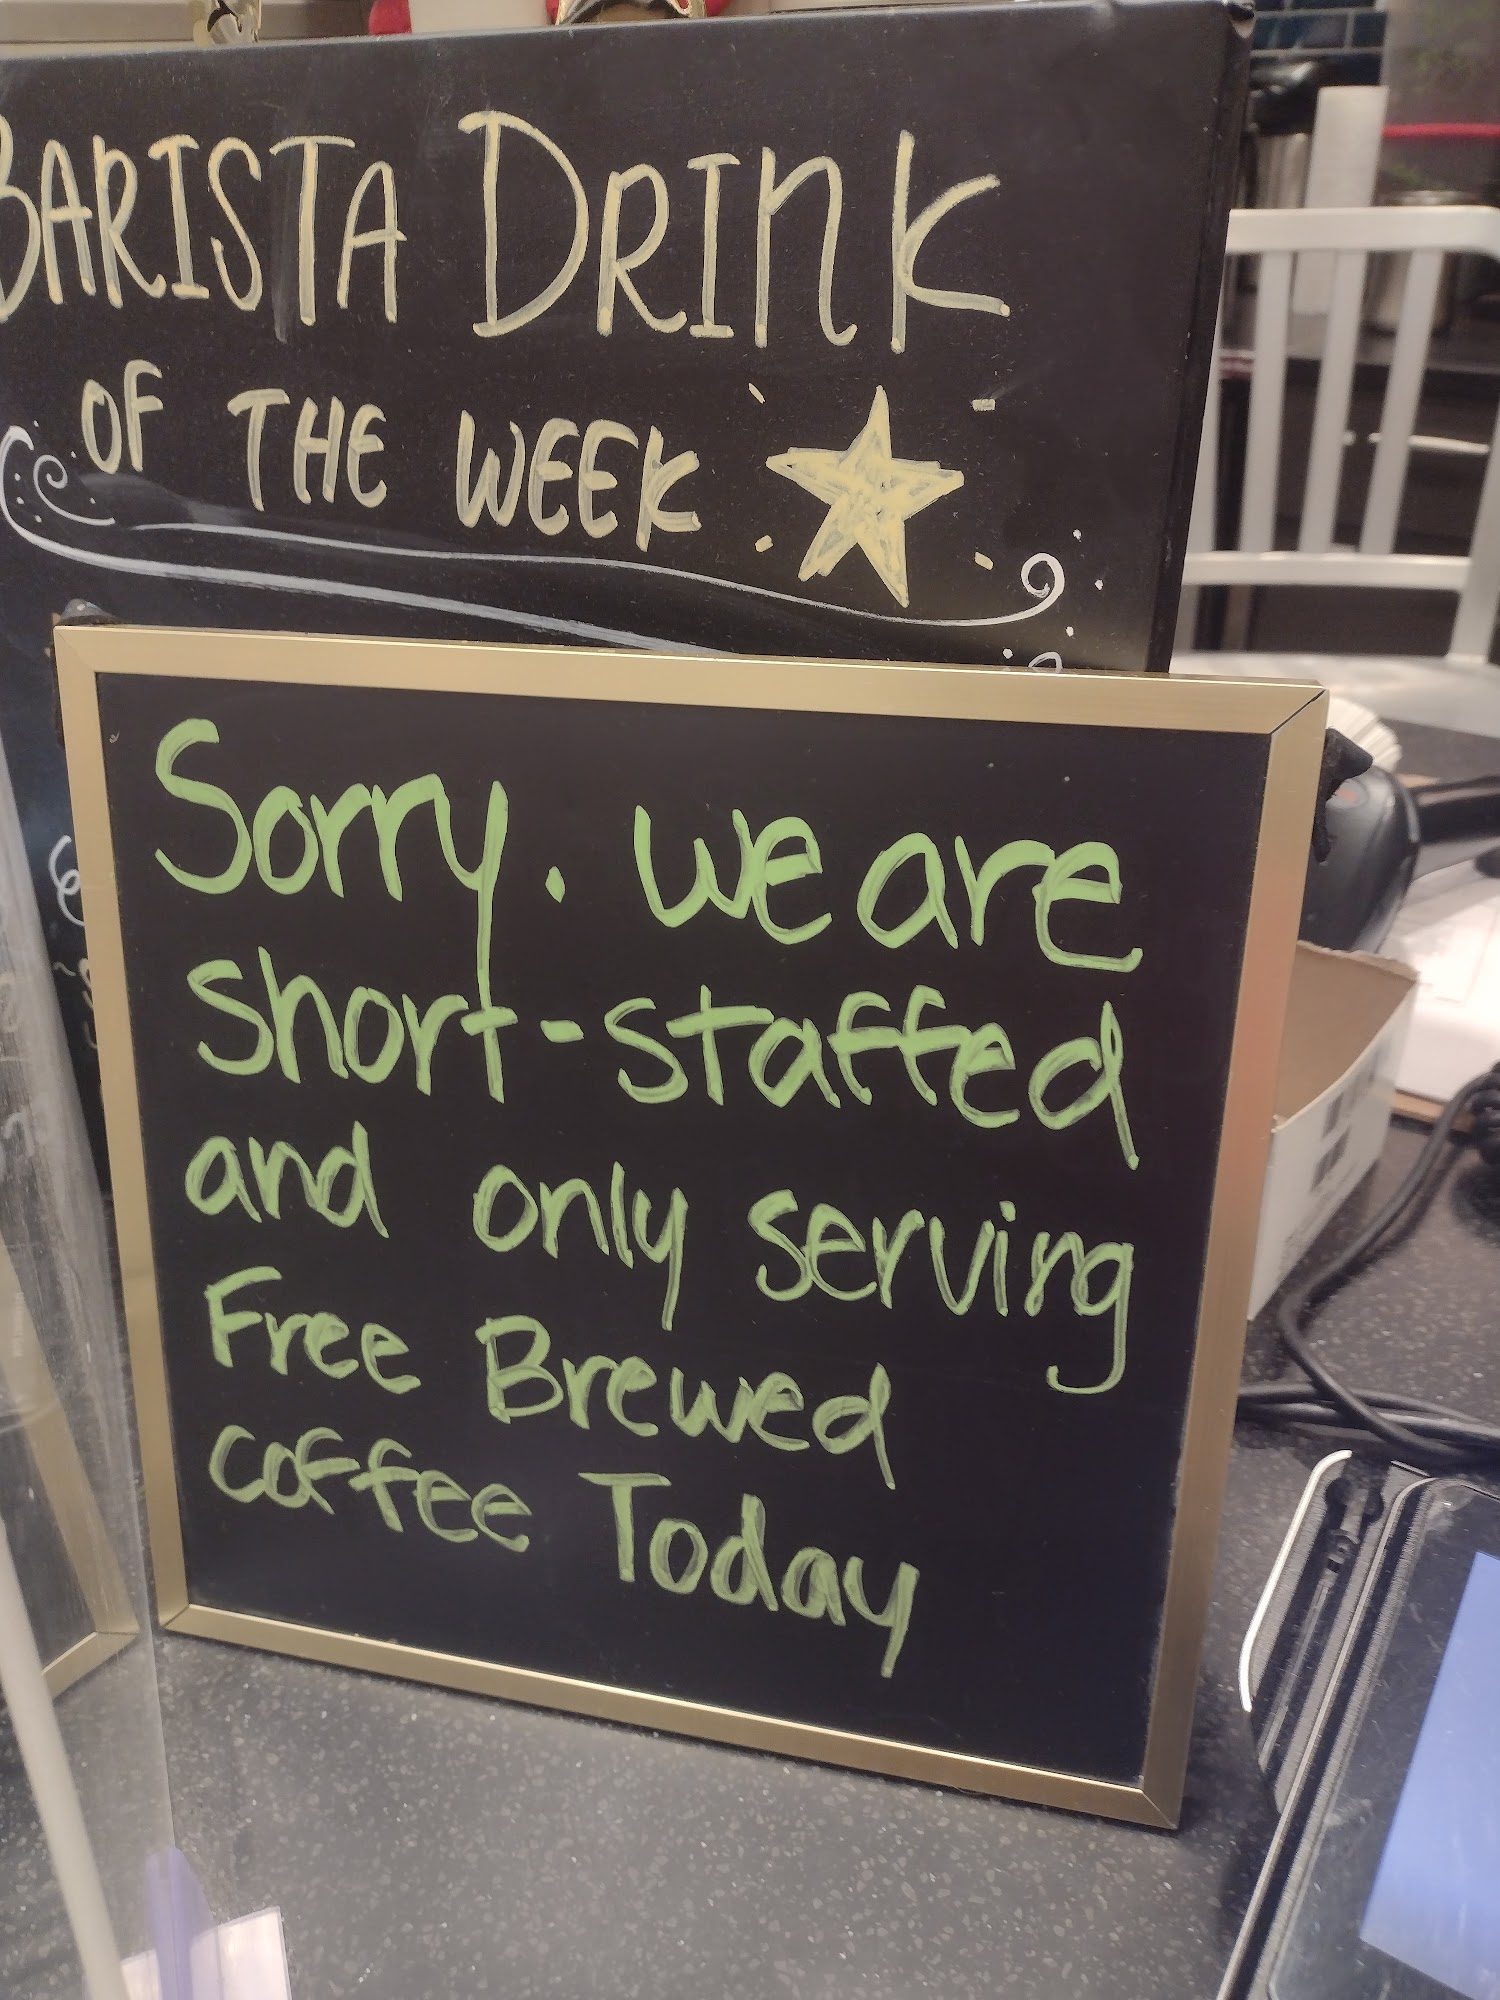 BARISTA DRINK
OF THE WEEK
Sorry. we are
short-staffed
and only serving
Free Brewed
coffee Today